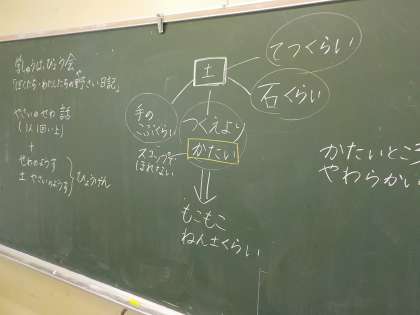 学しゅうはっぴょう会
「ぼくたち・わたしたちの野さい日記」
やさいのせわ 話
(1人1回い上)
+
せわのようす
土 やさいのようす
ひょうげん
土
てつくらい
石くらい
手の
こぶしくらい
つくえより
かたい
スコップで
ほれない
もこもこ
ねん土くらい
かたいとこ
やわらかい